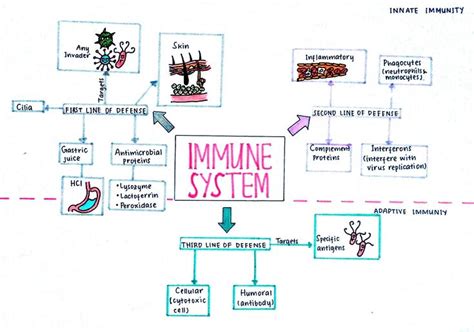 INNATE IMMUNITY
Any
Invader
Skin
Targets
Inflammatory
Phagocytes
(neutrophils &
monocytes).
Cilia
FIRST LINE OF DEFENSE
SECOND LINE OF DEFENSE
Gastric
juice
HCl
Antimicrobial
proteins
• Lysozyme
• Lactoferrin
• Peroxidase
IMMUNE
SYSTEM
Complement
proteins
Interferons
(interfere with
virus replication)
ADAPTIVE IMMUNITY
THIRD LINE OF DEFENSE
Targets
Specific
antigens
Cellular
(cytotoxic
cell)
Humoral
(antibody)